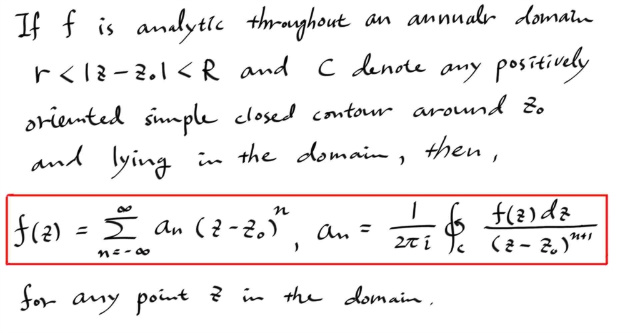 If f is analytic throughout an annualr domain
r < |z - z₀| < R and C denote any positively
orieınted simple closed contour around z₀
and lying in the domain, then,
f(z) = ∑_{n=-∞}^{∞} aₙ (z - z₀)ⁿ, aₙ = \frac{1}{2πi} ∮_c \frac{f(z) dz}{(z - z₀)^{n+1}}
for any point z in the domain.